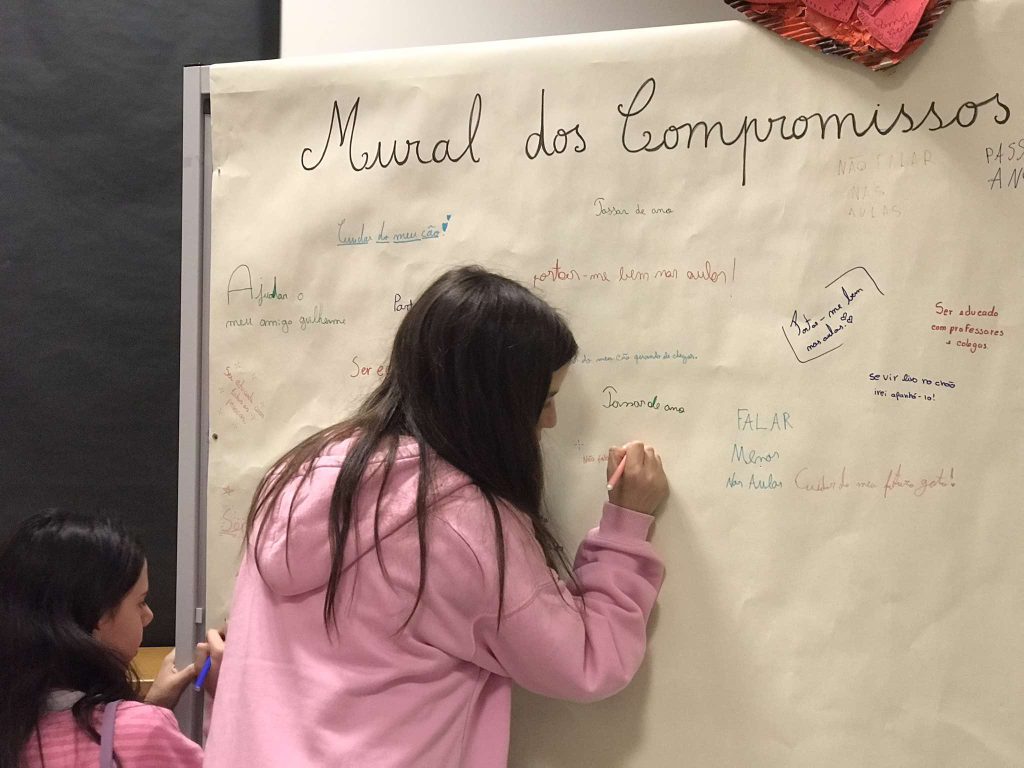 Mural dos Compromissos
NÃO FALAR
NAS
AULAS
PASS
AN
Passar de ano
Cuidar do meu cão!
portar-me bem nas aulas!
Ajudar o
meu amigo guilherme
Part
Portar-me bem
nas aulas.
Ser educado
com professores
e colegas.
do meu cão quando de chegar.
Ser e
Ser educado com
todas as
pessoas
se vir lixo no chão
irei apanhá-lo!
Passar de ano
FALAR
Menos
Nas Aulas
Cuidar do meu futuro gato!
Não fala